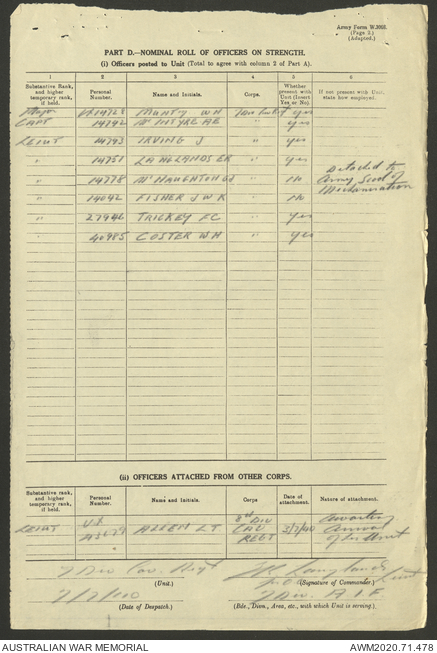 Army Form W.3008.
(Page 2.)
(Adapted.)
PART D.—NOMINAL ROLL OF OFFICERS ON STRENGTH.
(i) Officers posted to Unit (Total to agree with column 2 of Part A).
1 2 3 4 5 6
Substantive Rank, and higher temporary rank, if held. Personal Number. Name and Initials. Corps. Whether present with Unit (Insert Yes or No). If not present with Unit, state how employed.
Major VX14728 MUNTY WH 7 Div Cav Regt yes
CAPT 14742 McINTYRE AE " yes
LEIUT 14743 IRVING J " yes
" 14751 LANGLANDS ER " yes
" 14778 McNAUGHTON GJ " no Detached to Army School of Mechanisation
" 14042 FISHER J W R " no
" 27946 TRICKEY FC " yes
" 40985 COSTER WH " yes
(ii) OFFICERS ATTACHED FROM OTHER CORPS.
Substantive rank, and higher temporary rank, if held. Personal Number. Name and Initials. Corps Date of attachment. Nature of attachment.
LEIUT VX ALLEN LT 8th DIV CAV REGT 3/7/40 Awaiting arrival of his Unit
7 Div Cav. Regt
(Unit.) (Signature of Commander.) Lieut
7/7/40 7 Div. A I F
(Date of Despatch.) (Bde., Divn., Area, etc., with which Unit is serving.)
AUSTRALIAN WAR MEMORIAL AWM2020.71.478